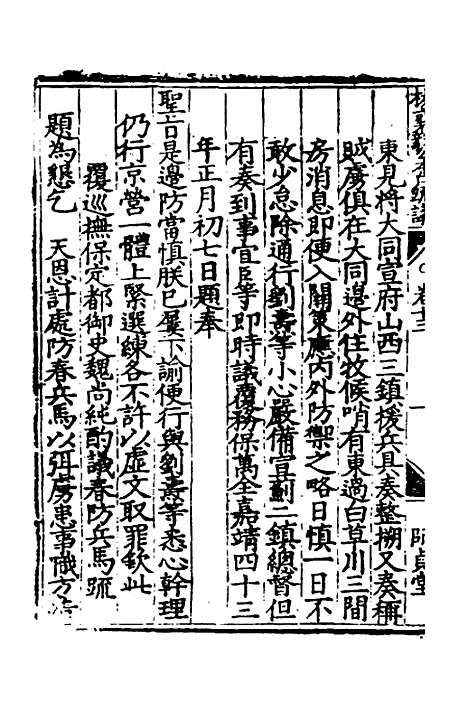 東見將大同宣府山西三鎮援兵具奏整搠又奏稱
賊虜俱在大同邊外住牧候哨有東過白草川三間
房消息即便入關策應內外防禦之略日慎一日不
敢少怠除通行劉燾等小心嚴備宣薊二鎮總督但
有奏到事宜臣等即時議覆務保萬全嘉靖四十三
年正月初七日題奉
聖旨是邊防當慎朕已屢下諭便行與劉燾等悉心幹理
仍行京營一體上緊選練各不許以虛文取罪欽此
覆巡撫保定都御史魏尚純酌議春防兵馬疏
題為懇乞 天恩計處防春兵馬以弭虜患事職方清
卷十三
一